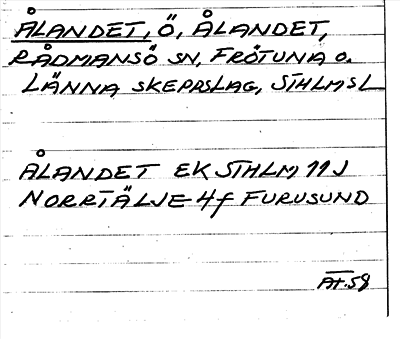 ÅLANDET, Ö, ÅLANDET,
RÅDMANSÖ SN, FRÖTUNA O.
LÄNNA SKEPPSLAG, STHLMS L
ÅLANDET EK STHLM 11 J
NORRTÄLJE 4f FURUSUND
AT.58